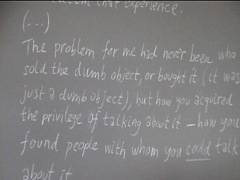 that experience.
(...)
The problem for me had never been who
sold the dumb object, or bought it (it was
just a dumb object), but how you acquired
the privilege of talking about it – how you
found people with whom you could talk
about it